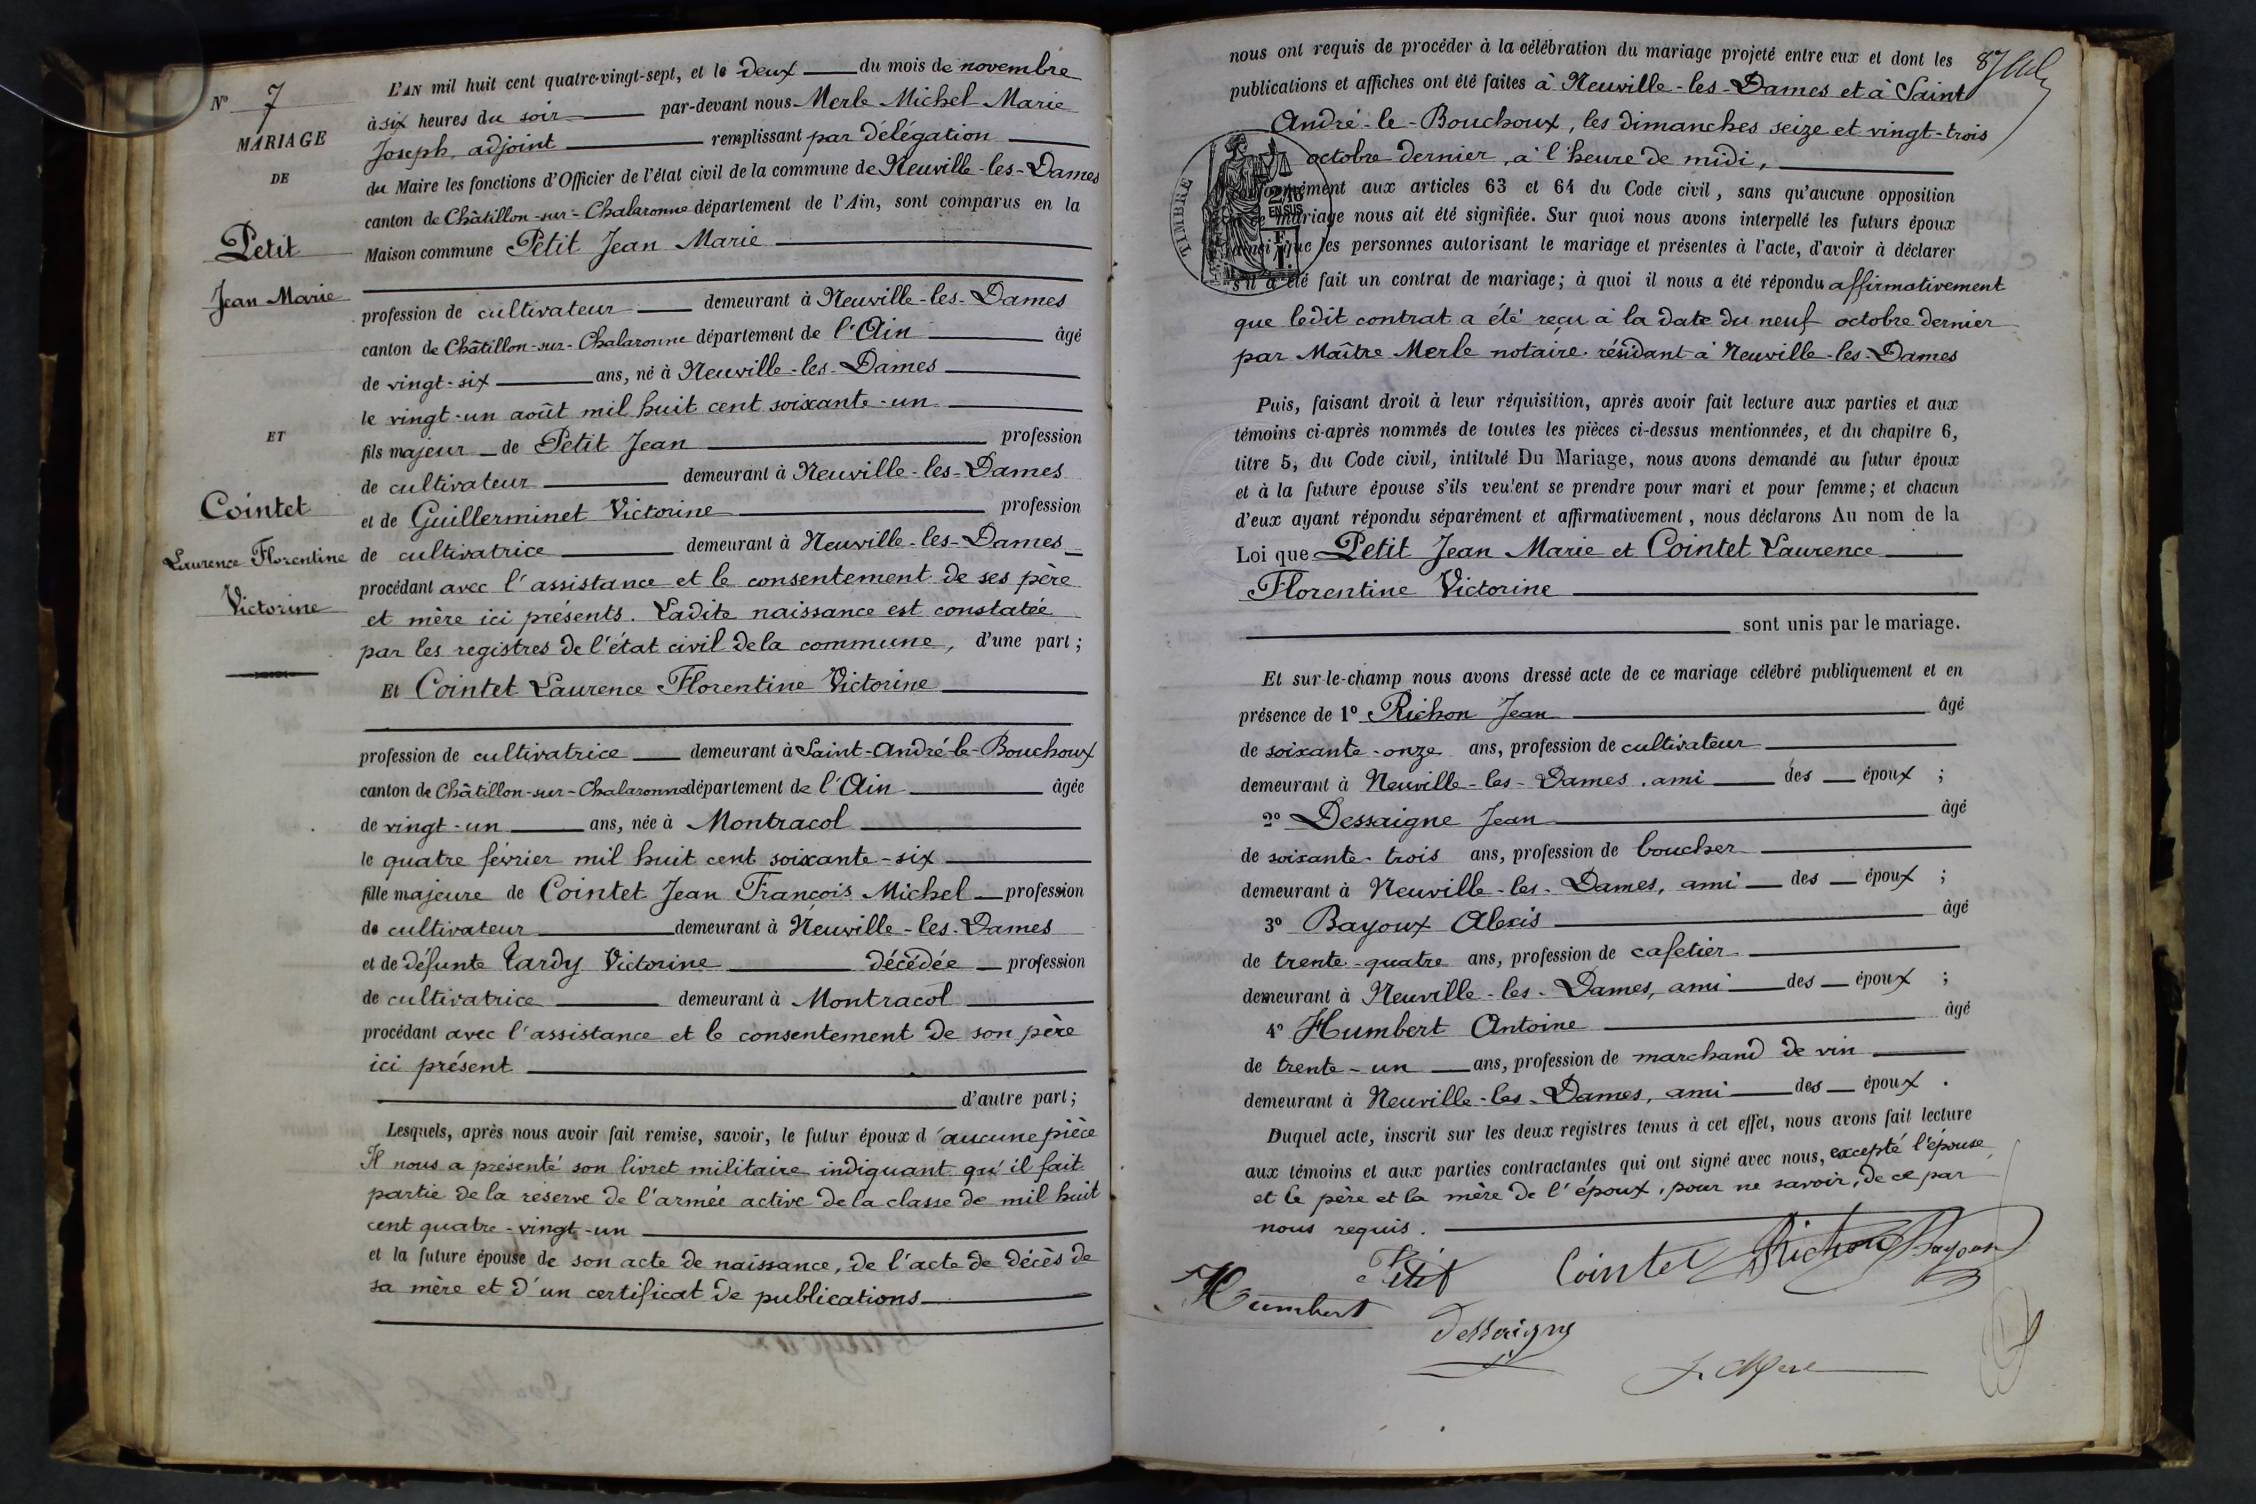 N° 7
MARIAGE
DE
Petit
Jean Marie
ET
Cointet
Laurence Florentine
Victorine
L'AN mil huit cent quatre-vingt-sept, et le deux du mois de novembre
à six heures du soir par-devant nous Merle Michel Marie
Joseph, adjoint remplissant par délégation
du Maire les fonctions d'Officier de l'état civil de la commune de Neuville-les-Dames
canton de Châtillon-sur-Chalaronne département de l'Ain, sont comparus en la
Maison commune Petit Jean Marie
profession de cultivateur demeurant à Neuville-les-Dames
canton de Châtillon-sur-Chalaronne département de l'Ain âgé
de vingt-six ans, né à Neuville-les-Dames
le vingt-un août mil huit cent soixante-un
fils majeur de Petit Jean profession
de cultivateur demeurant à Neuville-les-Dames
et de Guillerminet Victorine profession
de cultivatrice demeurant à Neuville-les-Dames
procédant avec l'assistance et le consentement de ses père
et mère ici présents. Ladite naissance est constatée
par les registres de l'état civil de la commune, d'une part;
Et Cointet Laurence Florentine Victorine
profession de cultivatrice demeurant à Saint-André-le-Bouchoux
canton de Châtillon-sur-Chalaronne département de l'Ain âgée
de vingt-un ans, née à Montracol
le quatre février mil huit cent soixante-six
fille majeure de Cointet Jean François Michel profession
de cultivateur demeurant à Neuville-les-Dames
et de défunte Tardy Victorine décédée profession
de cultivatrice demeurant à Montracol
procédant avec l'assistance et le consentement de son père
ici présent
d'autre part;
Lesquels, après nous avoir fait remise, savoir, le futur époux d'aucune pièce
Il nous a présenté son livret militaire indiquant qu'il fait
partie de la réserve de l'armée active de la classe de mil huit
cent quatre-vingt-un
et la future épouse de son acte de naissance, de l'acte de décès de
sa mère et d'un certificat de publications
nous ont requis de procéder à la célébration du mariage projeté entre eux et dont les
87
publications et affiches ont été faites à Neuville-les-Dames et à Saint
André-le-Bouchoux, les dimanches seize et vingt-trois
octobre dernier, à l'heure de midi,
TIMBRE
2/10
EN SUS
aux articles 63 et 64 du Code civil, sans qu'aucune opposition
mariage nous ait été signifiée. Sur quoi nous avons interpellé les futurs époux
ainsi que les personnes autorisant le mariage et présentes à l'acte, d'avoir à déclarer
s'il a été fait un contrat de mariage; à quoi il nous a été répondu affirmativement
que ledit contrat a été reçu à la date du neuf octobre dernier
par Maître Merle notaire résidant à Neuville-les-Dames
Puis, faisant droit à leur réquisition, après avoir fait lecture aux parties et aux
témoins ci-après nommés de toutes les pièces ci-dessus mentionnées, et du chapitre 6,
titre 5, du Code civil, intitulé Du Mariage, nous avons demandé au futur époux
et à la future épouse s'ils veulent se prendre pour mari et pour femme; et chacun
d'eux ayant répondu séparément et affirmativement, nous déclarons Au nom de la
Loi que Petit Jean Marie et Cointet Laurence
Florentine Victorine
sont unis par le mariage.
Et sur-le-champ nous avons dressé acte de ce mariage célébré publiquement et en
présence de 1° Richon Jean âgé
de soixante-onze ans, profession de cultivateur
demeurant à Neuville-les-Dames, ami des époux ;
2° Dessaigne Jean âgé
de soixante-trois ans, profession de boucher
demeurant à Neuville-les-Dames, ami des époux ;
3° Bayoux Alexis âgé
de trente-quatre ans, profession de cafetier
demeurant à Neuville-les-Dames, ami des époux ;
4° Humbert Antoine âgé
de trente-un ans, profession de marchand de vin
demeurant à Neuville-les-Dames, ami des époux .
Duquel acte, inscrit sur les deux registres tenus à cet effet, nous avons fait lecture
aux témoins et aux parties contractantes qui ont signé avec nous, excepté l'épouse,
et le père et la mère de l'époux, pour ne savoir, de ce par
nous requis.
Petit Cointet Richon Bayoux
Humbert
Dessaigne